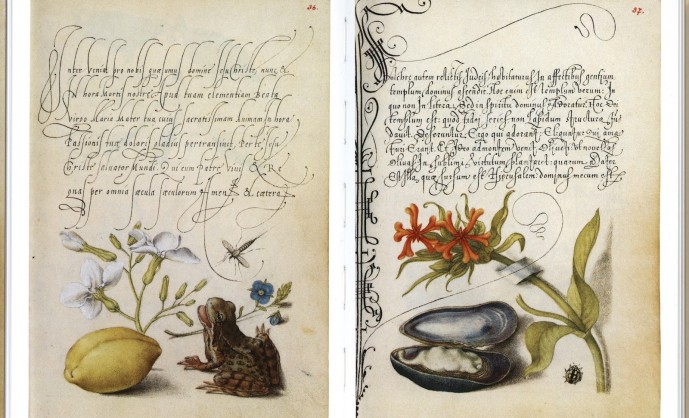 36.
Inter veniat pro nobis quæsumus domine Jesu christe, nunc &
In hora Mortis nostræ, apud tuam clementiam Beata
Virgo Maria Mater tua cuius sacratissimam Animam in hora
Passionis tuæ doloris gladius pertransiuit. Per te Jesu
Christe saluator Mundi. Qui cum Patre, Viuis & Re
gnas per omnia sæcula sæculorum Amen & cætera
37.
Pulchre autem relictis Judeis habitaturus In affectibus gentium
templum dominus ascendit. Hoc enim est templum verum: In
quo non In litera Sed in spiritu dominus Adoratur. Hoc Dei
templum est: quod fidei series non Lapidum structura, fu
dauit. Deseruntur Ergo qui adorant; Eliguntur qui ama
turi Erant. Et Ideo ad montem venit Oliueti, ut nouellas
Oliuas In sublimi virtutum plantaret: quarum Mater
Est Illa, quæ sursum est Hierusalem: dominus mecum est.